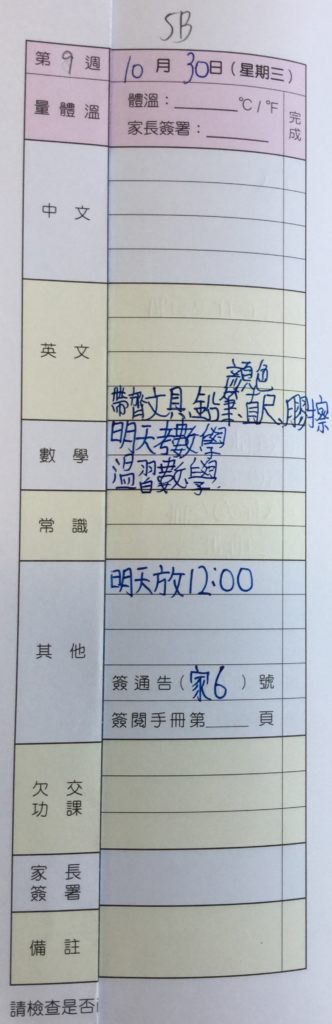 5B
第 9 週 10 月 30 日 (星期三)
量體溫 體溫：______℃/℉ 完成
家長簽署：______
中文
英文
顏色
帶齊文具、鉛筆、直尺、膠擦
數學 明天考數學
溫習數學
常識
其他 明天放12:00
簽通告(家6)號
簽閱手冊第____頁
欠交功課
家長簽署
備註
請檢查是否